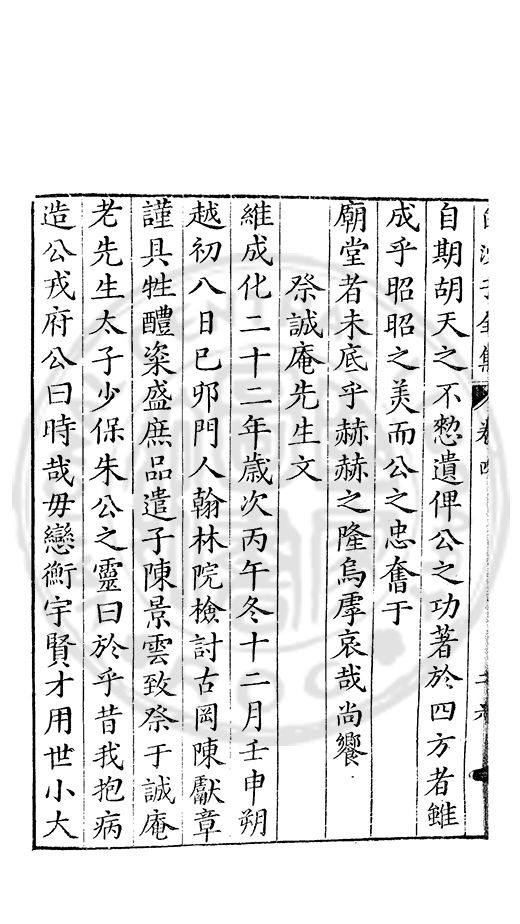 自期胡天之不憖遺俾公之功著於四方者雖
成乎昭昭之美而公之忠奮于
廟堂者未底乎赫赫之隆烏虖哀哉尚饗
祭誠庵先生文
維成化二十二年歲次丙午冬十二月壬申朔
越初八日巳卯門人翰林院檢討古岡陳獻章
謹具牲醴粢盛庶品遣子陳景雲致祭于誠庵
老先生太子少保朱公之靈曰於乎昔我抱病
造公戎府公曰時哉毋戀衡宇賢才用世小大